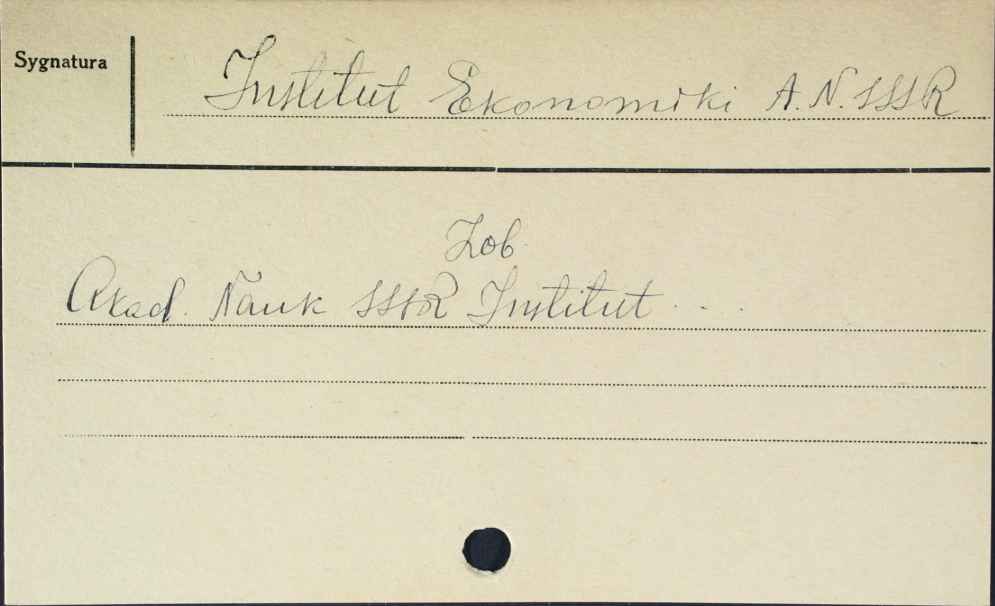 Sygnatura
Institut Ekonomiki A.N.SSSR
Zob
Akad. Nauk SSSR Institut . .